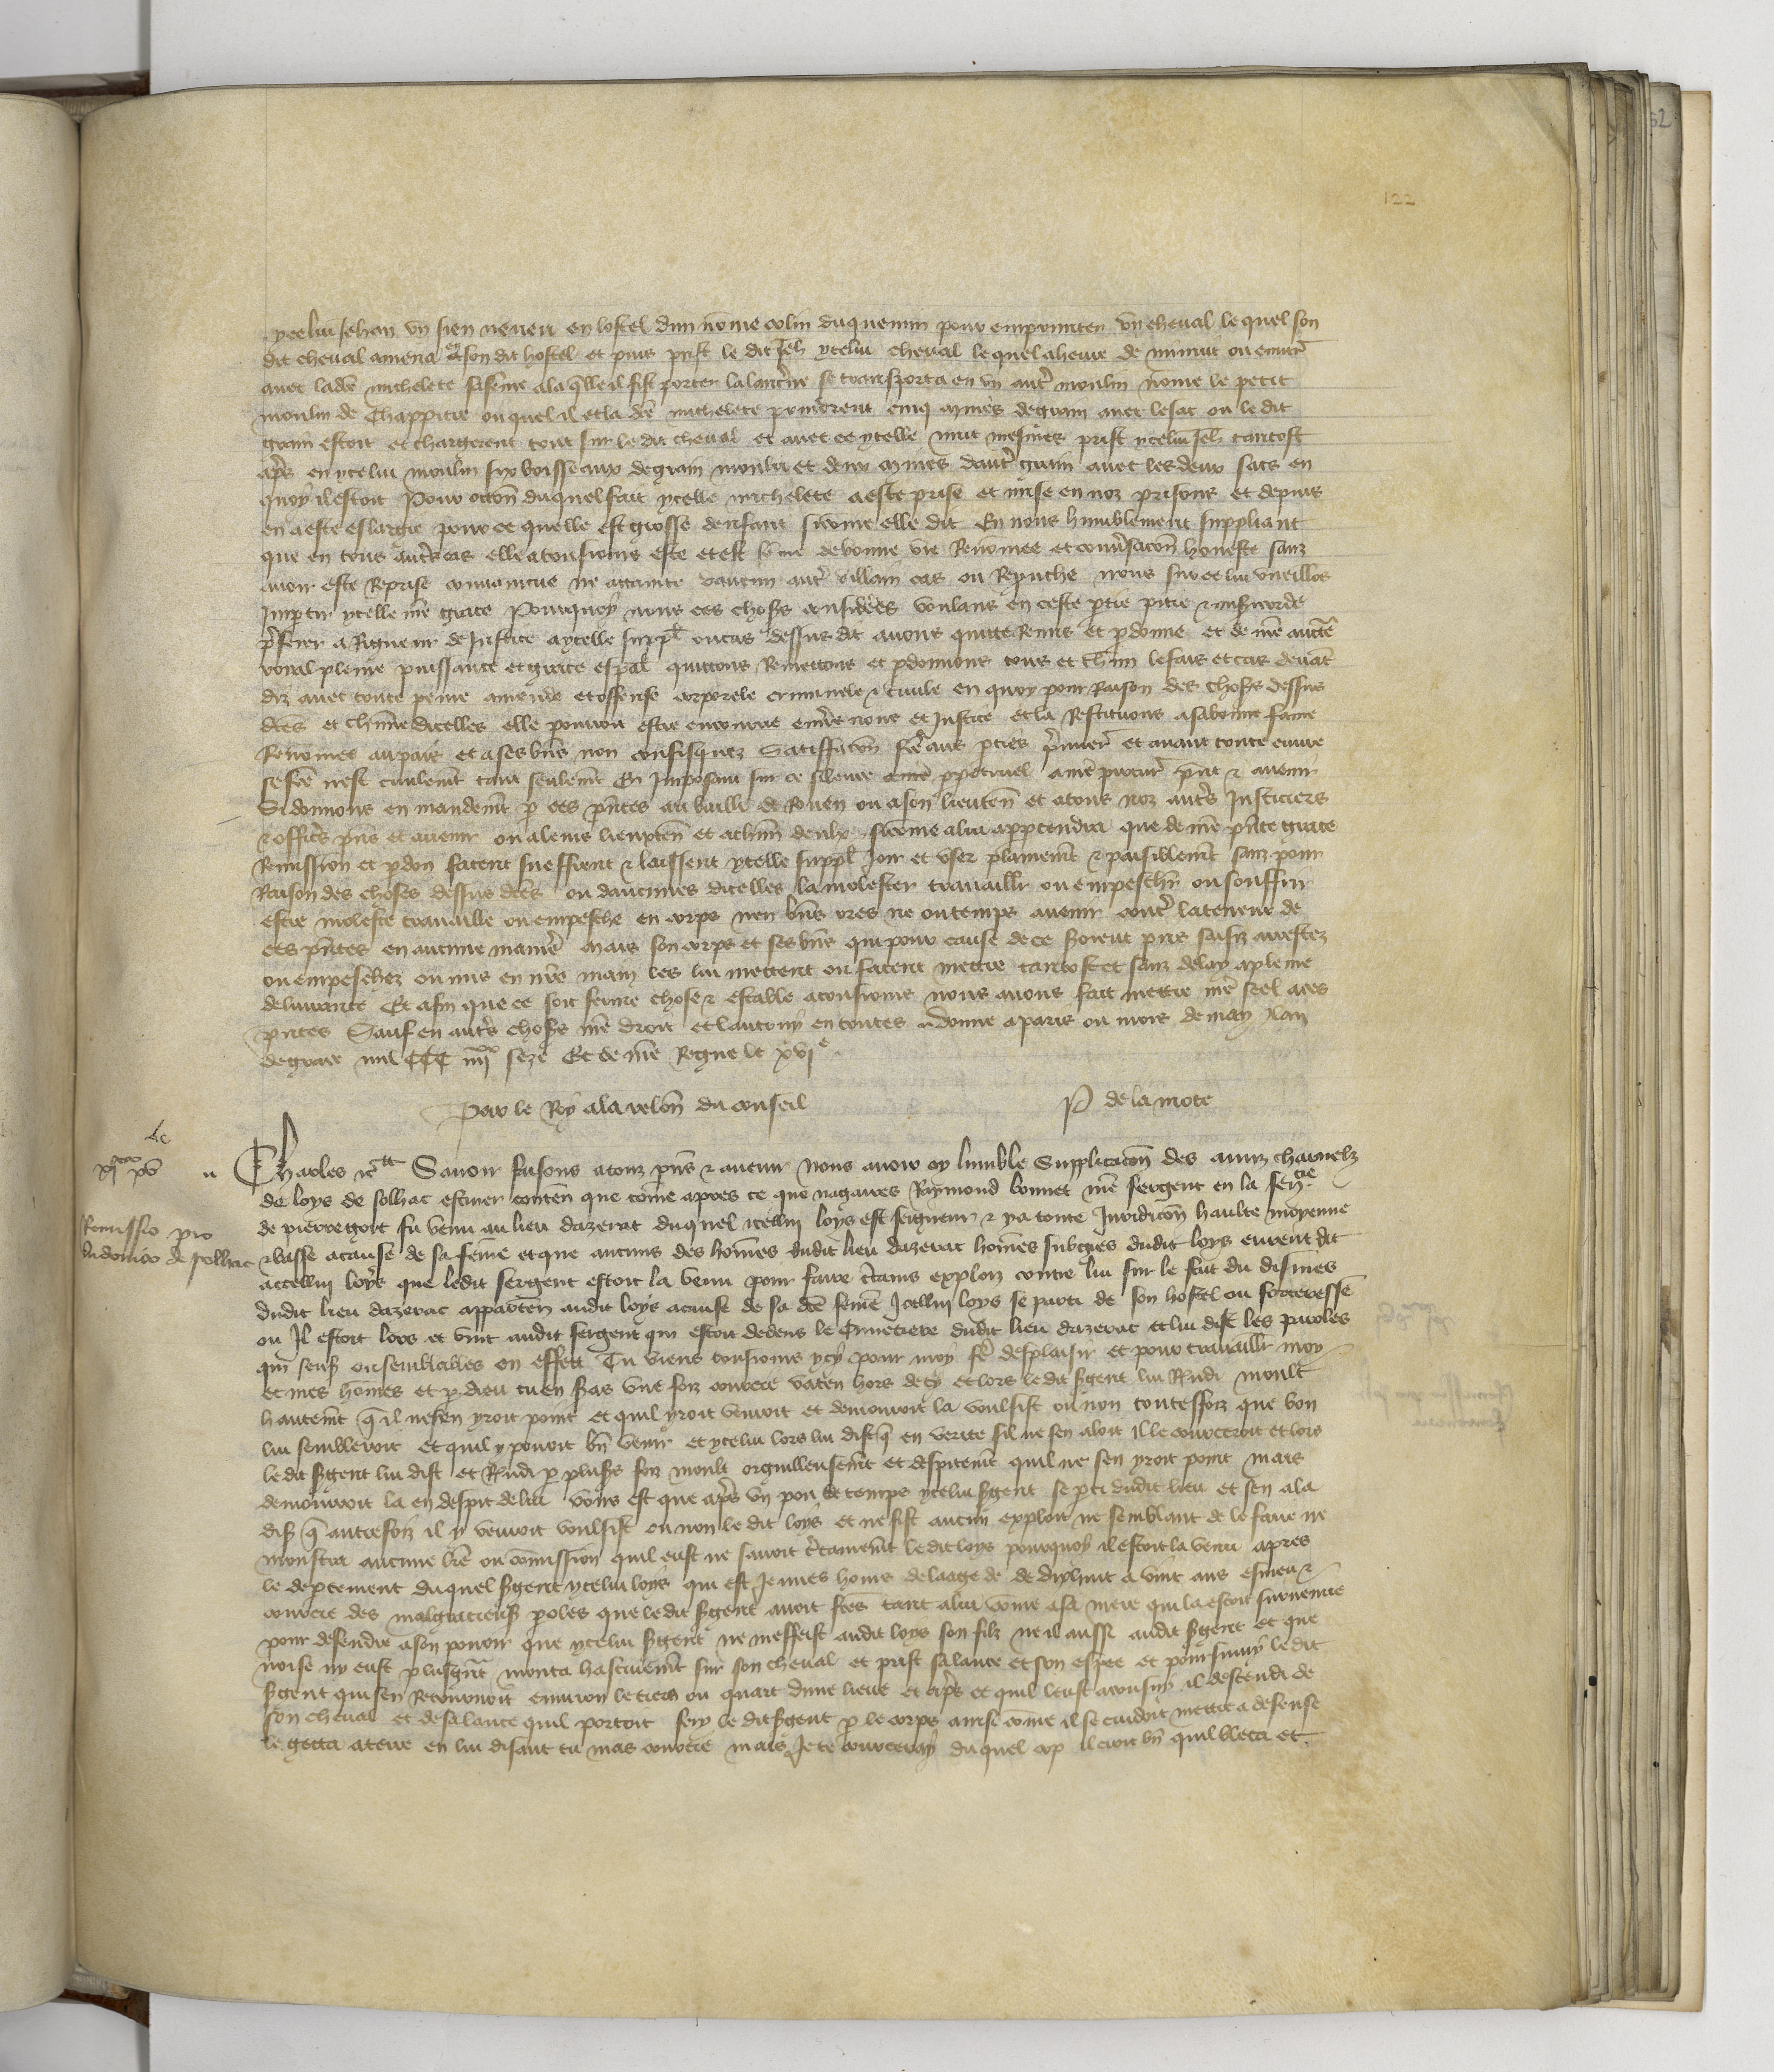 122
ycellui Jehan un sien neveu en lostel dun nome colin duquemin pour emprunter un cheval le quel son
dit cheval amena a son dit hostel et puis prist le dit Jeh ycellui cheval le quel a heure de minuit ou environ
avec ladce michelete sa feme a laqlle il fist porter la lantne se transporta en un autre moulin nome le petit
moulin de Chappitre ou quel il et la dce michelete prindrent cinq mines de grain avec le sac ou le dit
grain estoit et chargerent tout sur le dit cheval et avec ce ycelle nuit mesmes prist ycellui Jeh tantost
apres en ycellui moulin six boisseaux de grain moulu et deux mines dautre grain avec les deux sacs en
quoy il estoit Pour occon duquel fait ycelle michelete a este prise et mise en noz prisons et depuis
en a este eslargie pour ce quelle est grosse denfant si come elle dit En nous humblement suppliant
que en tous autres cas elle a tousjours este et est feme de bonne vie Renomee et convsacon honeste sanz
avoir este Reprise convaincue ne attainte daucun autre villain cas ou Reprouche nous sur ce lui vueillons
Impartir ycelle nre grace Pourquoy nous ces choses considees voulans en ceste ptie pitie & misericorde
pferer a Rigueur de Justice a ycelle suppl ou cas dessus dit avons quitte Remis et pdonne et de nre aucte
Royal pleine puissance et grace espal quittons Remettons et pdonnons tous et chun le fais et cas devant
diz avec toute peine amende et offense corporele criminele & civile en quoy pour Raison des choses dessus
dces et chune dicelles elle pourroit estre encourue envers nous et Justice et la Restituons a sa bonne fame
Renomee au pais et a ses bns non confisquez Satisfacon fce aus pties pmier et avant toute euvre
se fce nest civilemt tant seulemt En Imposant sur ce silence a nre ppetuel a nre procur pnt & avenir
Si donnons en mandemt p ces pntes au bailli de Rouen ou a son lieuten et a tous noz autres Justiciers
& officrs pns et avenir ou a leurs lieuxten et a chun deulx si come a lui appartendra que de nre pnte grace
Remission et pdon facent sueffrent & laissent ycelle suppl Joir et user plainemt & paisiblemt sanz pour
Raison des choses dessus dces ou daucunes dicelles la molester travaillr ou empeschr ou souffrir
estre molestee travaillee ou empeschee en corps nen bns ores ne ou temps avenir contre la teneur de
ces pntes en aucune manie Mais son corps et ses bns qui pour cause de ce seroient pris saisiz arrestez
ou empeschez ou mis en nre main les lui mettent ou facent mettre tantost et sanz delay a pleine
delivrance Et afin que ce soit ferme chose & estable a tousjours nous avons fait mettre nre seel a ces
pntes Sauf en autres choses nre droit et lautruy en toutes donne a paris ou mois de may Lan
de grace mil CCC iiiixx seze Et de nre Regne le xvie
Par le Roy a la relon du conseil P de la mote
Charles &c Savoir faisons a touz pns & avenir nous avoir oy lumble Supplicacon des amis charnelz
de loys de solhac escuier conten que come apres ce que nagaires Raymond bonnet nre sergent en la senesc
de pierregort fu venu au lieu dazerat duquel icellui loys est seigneur & y a toute Juridicon haulte moyenne
Remissio pro
ludovico de solhac
& basse a cause de sa feme et que aucuns des homes dudit lieu dazerac homes subgies dudit loys eurent dit
a icellui loys que ledit sergent estoit la venu pour faire ctains exploiz contre lui sur le fait du disines
dudit lieu dazerac apparten audit loys a cause de sa dce feme Icellui loys se parti de son hostel ou forteresse
ou Il estoit lors et vint audit sergent qui estoit dedens le Cimetiere dudit lieu dazerac et lui dist les paroles
qui sens ou semblables en effect Tu viens tousjours ycy pour moy fe desplaisir et pour travaillr moy
et mes homes et p dieu tu en seras une foiz courcie vaten hors de cy et lors le dit sgent lui Rndi moult
hautemt q il nesen yroit point et quil yroit venroit et demourroit la voulsist ou non toutesfoiz que bon
lui sembleroit et quil y pouoit bn venir et ycellui lors lui dist q en verite sil ne sen aloit il le courceroit et lors
le dit sgent lui dist et Rndi p pluss foiz moult orgueilleusemt et despitemt quil ne sen yroit point mais
demourroit la en despit de lui vous est que apres un pou de temps ycellui sgent se pti dudit lieu et sen ala
dis q autrefoiz il y venroit voulsist ou non le dit loys et ne fist aucun exploit ne semblant de le faire ne
monstra aucune lre ou comission quil eust ne savoit ctainemt le dit loys pourquoy il estoit la venu apres
le deptement duquel sgent ycellui loys qui est Jeunes homs de laage de dixhuit a vint ans esmeu &
courcie des malgracieuses poles que le dit sgent avoit fces tant a lui come a sa mere qui la estoit survenue
pour defendre a son pouoir que ycellui sgent ne meffeist audit loys son filz ne il aussi audit sgent et que
noise ny eust plus grt monta hastivemt sur son cheval et prist sa lance et son espee et poursuiuy le dit
sgent qui sen Retournoit environ le tiers ou quart dune lieue et apres ce quil leust aconsuy il descendi de
son cheval et de sa lance quil portoit fery le dit sgent p le corps ainsi come il se cuidoit mettre a defense
le getta a terre en lui disant tu mas courcie mais Je te courceray duquel cop il croit bn quil bleca et